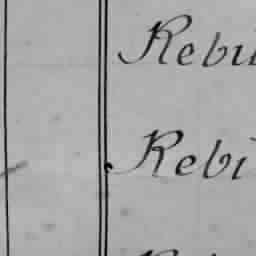 Rebu
Rebi